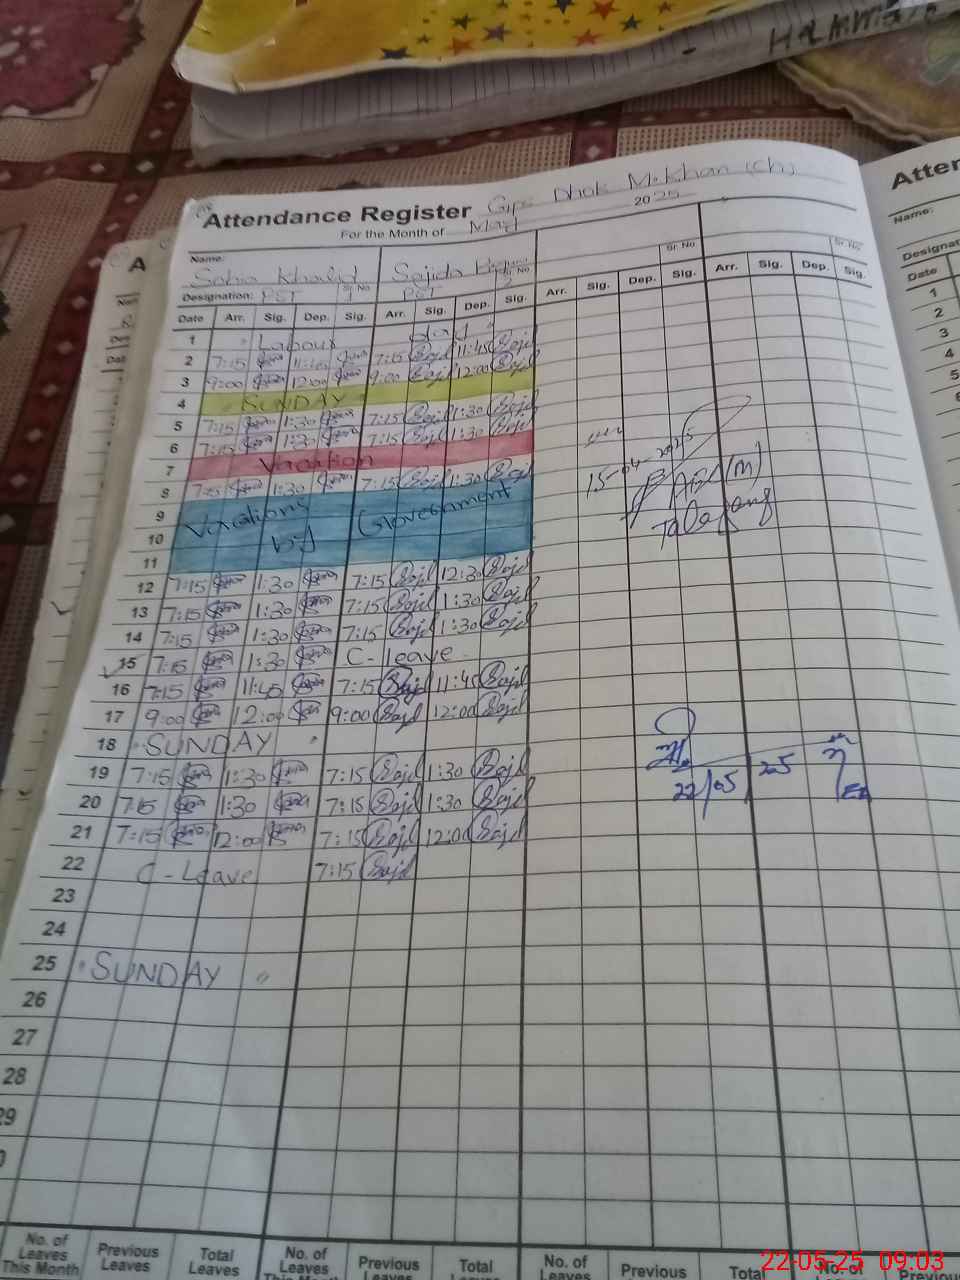 Hammad
Attendance Register GPS Dhok M.Khan (Ch)
For the Month of May 2025
Name: Sr. No Sr. No
Sabia Khalid Sajida
Designation: PST Sr No 1 PST Sr No 2
Date Arr. Sig. Dep. Sig. Arr. Sig. Dep. Sig. Arr. Sig. Dep. Sig. Arr. Sig. Dep. Sig.
1 Labour day
2 7:15 11:45 7:15 Sajd 11:45 Sajd
3 9:00 12:00 9:00 Sajd 12:00 Sajd
4 SUNDAY
5 7:15 1:30 7:15 Sajd 1:30 Sajd
6 7:15 1:30 7:15 Sajd 1:30 Sajd
7 Vacation
8 7:15 1:30 7:15 Sajd 1:30 Sajd
9 Vacations Government
10 by
11
12 7:15 1:30 7:15 Sajd 12:30 Sajd
13 7:15 1:30 7:15 Sajd 1:30 Sajd
14 7:15 1:30 7:15 Sajd 1:30 Sajd
15 7:15 1:30 C-leave
16 7:15 11:45 7:15 Sajd 11:45 Sajd
17 9:00 12:00 9:00 Sajd 12:00 Sajd
18 SUNDAY
19 7:15 1:30 7:15 Sajd 1:30 Sajd
20 7:15 1:30 7:15 Sajd 1:30 Sajd
21 7:15 12:00 7:15 Sajd 12:00 Sajd
22 C-Leave 7:15 Sajd
23
24
25 SUNDAY
26
27
28
29
15-04-2025
AEO (M)
Talagang
22/05 25
No. of Leaves This Month Previous Leaves Total Leaves No. of Leaves Previous Leaves Total Leaves No. of Leaves Previous Total No. of Previous
Atten
Name:
Designat
Date
1
2
3
4
5
6
7
8
9
10
11
12
13
14
15
16
17
18
19
20
21
22
23
24
25
26
27
28
22-05-25 09:03